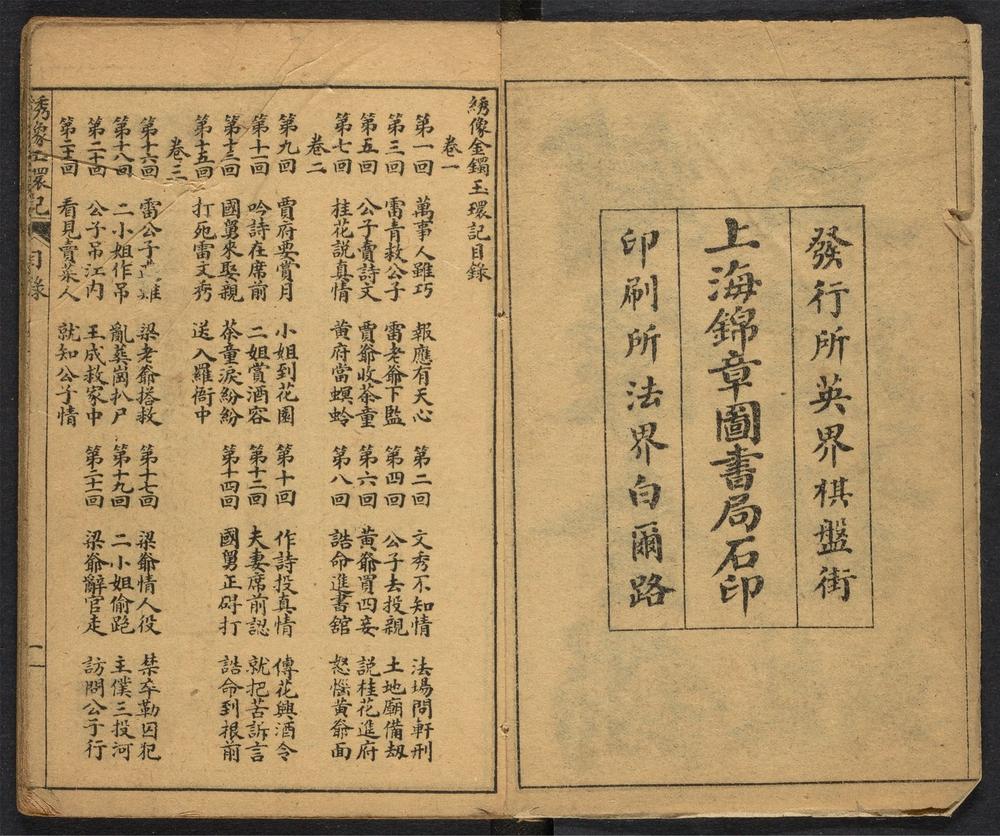 發行所英界棋盤街
上海錦章圖書局石印
印刷所法界白爾路
綉像金鐲玉環記目錄
卷一
第一回 萬事人雖巧 報應有天心 第二回 文秀不知情 法場問軒刑
第三回 雷青救公子 雷老爺下監 第四回 公子去投親 土地廟備刼
第五回 公子賣詩文 賈爺收茶童 第六回 黃爺買四妾 説桂花進府
第七回 桂花説真情 黃府當螟蛉 第八回 誥命進書舘 怒惱黃爺面
卷二
第九回 賈府要賞月 小姐到花園 第十回 作詩投真情 傳花興酒令
第十一回 吟詩在席前 二姐賞酒容 第十二回 夫妻席前認 就把苦訴言
第十三回 國舅來娶親 茶童淚紛紛 第十四回 國舅正碍打 誥命到根前
第十五回 打死雷文秀 送入羅衙中
卷三
第十六回 雷公子 難 梁老爺搭救 第十七回 梁爺情人役 禁卒勒囚犯
第十八回 二小姐作吊 亂葬崗扒尸 第十九回 二小姐偷跑 主僕三投河
第二十回 公子吊江内 王成救家中 第二十一回 梁爺辭官走 訪問公子行
第二十二回 看見賣菜人 就知公子情
綉像玉環記 目錄 一